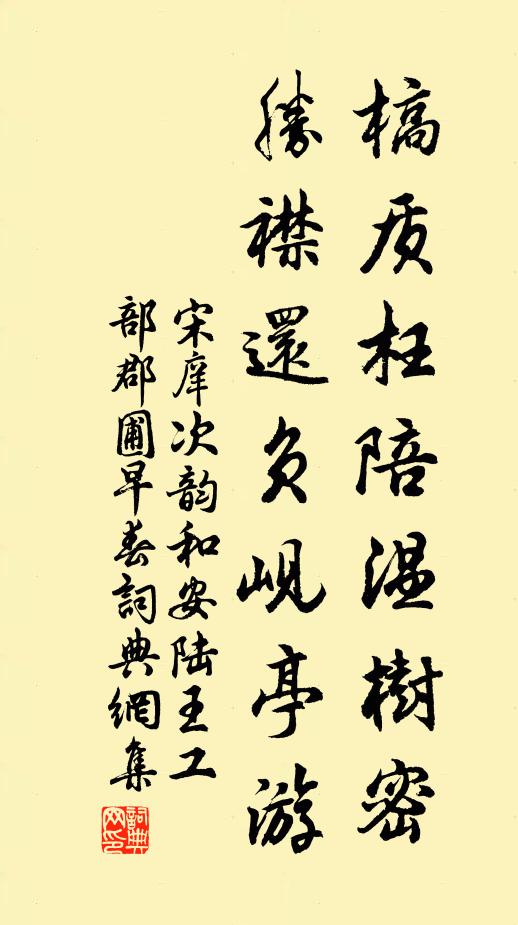 槁质枉陪温樹密
勝襟還负岘亭游
宋庠次韵和安陆王工
部郡圃早春詞典網集
詞典网印